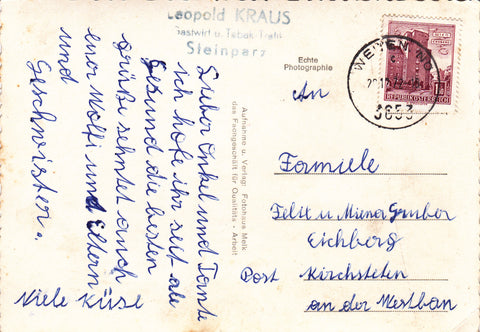 Leopold KRAUS
Gastwirt u. Tabak Trafik
Steinparz
Lieber Onkel und Tante
ich hofe ihr seit ale
Gesund die besten
grüße sehntet auch
euer Wolfi und Eltern
und
Geschwister.
Viele Küse
Aufnahme u. Verlag: Fotohaus Melk
das Fachgeschäft für Qualitäts - Arbeit
Echte
Photographie
WEITEN NÖ
3653
REPUBLIK ÖSTERREICH
An
Familie
Felit u Miena Gruber
Eichberg
Post Kirchsteten
an der Westban